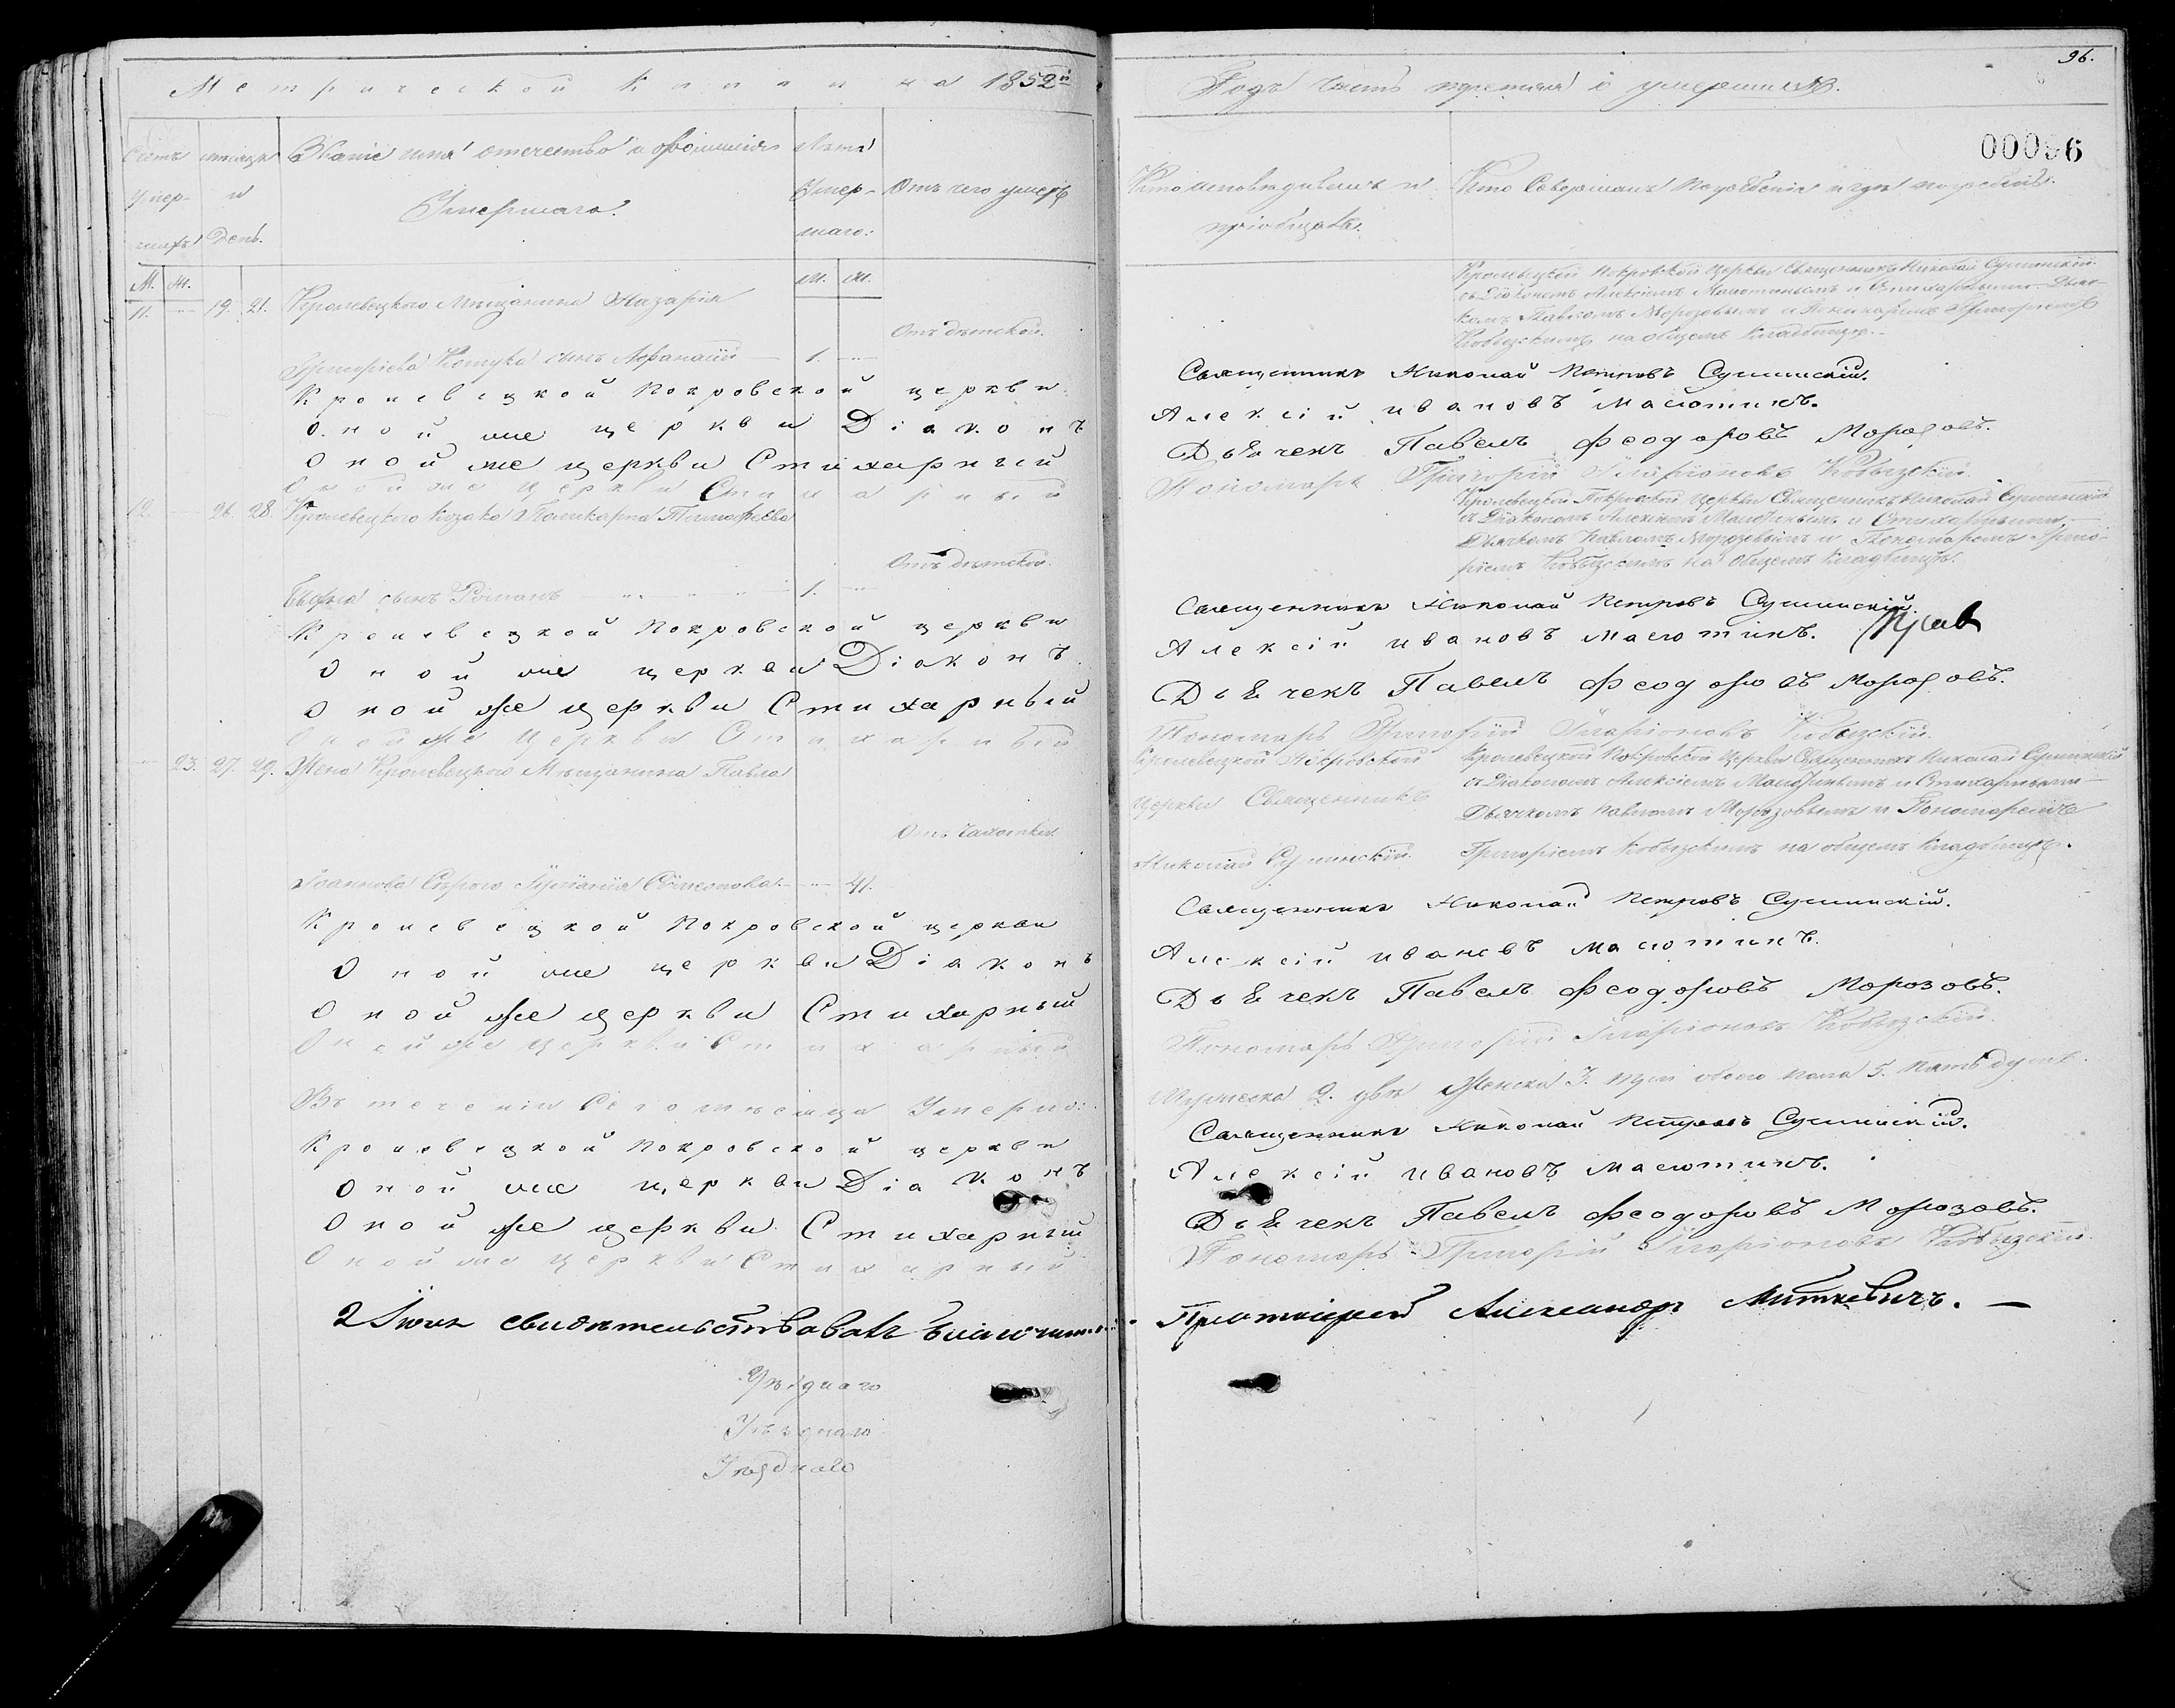 Метрической Книги на 1852й
Счетъ
Умер-
шихъ
мѣсяцъ
и
День.
Званіе имя отечество и фамилія
Умершаго.
Лѣта
Умер-
шаго:
Отъ чего умеръ
М. Ж.
М. Ж.
11. 19. 21. Кролевецкого Мѣщанина Назарія
Отъ дѣтской.
Григоріева сынъ Афанасій 1.
Кролевецкой Покровской церкви
Оной же церкви Діаконъ
Оной же церкви Стихарный
Оной же церкви Стихарный
12. 26. 28. Кролевецкого Козака Поликарпа Тимофѣева
Отъ дѣтской.
сынъ Романъ 1.
Кролевецкой Покровской церкви
Оной же церкви Діаконъ
Оной же церкви Стихарный
Оной же церкви Стихарный
23. 27. 29. Жена Кролевецкого Мѣщанина Павла
Отъ чахотки
Іоаннова Сѣрого Іуліанія Сѵмеонова 41.
Кролевецкой Покровской церкви
Оной же церкви Діаконъ
Оной же церкви Стихарный
Оной же церкви Стихарный
Въ теченіи Сего мѣсяца Умерло:
Кролевецкой Покровской церкви
Оной же церкви Діаконъ
Оной же церкви Стихарный
Оной же церкви Стихарный
2 Іюня свидѣтельствовалъ благочинный
Уѣзднаго
Уѣзднаго
Уѣзднаго
96.
Годъ Часть третія о умершихъ.
00096
Кто исповѣдывалъ и
пріобщалъ.
Кто Совершалъ Погребеніе и гдѣ погребенъ.
Кролевецкой Покровской Церкви Священникъ Николай Сулимскій
съ Діакономъ Алексіемъ Масютинымъ и Стихарными Дьяч-
комъ Павломъ Морозовымъ и Пономаремъ Григоріемъ
Кобызскимъ на общемъ кладбищѣ.
Священникъ Николай Петровъ Сулимскій.
Алексій Ивановъ Масютинъ.
Дьячекъ Павелъ Феодоровъ Морозовъ.
Пономарь Григорій Иларіоновъ Кобызскій.
Кролевецкой Покровской Церкви Священникъ Николай Сулимскій
съ Діакономъ Алексіемъ Масютинымъ и Стихарными
Дьячкомъ Павломъ Морозовымъ и Пономаремъ Григо-
ріемъ Кобызскимъ на общемъ кладбищѣ.
Священникъ Николай Петровъ Сулимскій.
Алексій Ивановъ Масютинъ.
Дьячекъ Павелъ Феодоровъ Морозовъ.
Пономарь Григорій Иларіоновъ Кобызскій.
Кролевецкой Покровской
Церкви Священникъ
Николай Сулимскій.
Кролевецкой Покровской Церкви Священникъ Николай Сулимскій
съ Діакономъ Алексіемъ Масютинымъ и Стихарными
Дьячкомъ Павломъ Морозовымъ и Пономаремъ
Григоріемъ Кобызскимъ на общемъ кладбищѣ.
Священникъ Николай Петровъ Сулимскій.
Алексій Ивановъ Масютинъ.
Дьячекъ Павелъ Феодоровъ Морозовъ.
Пономарь Григорій Иларіоновъ Кобызскій.
Мужеска 2. два Женска 3. три обоего пола 5. пять душъ.
Священникъ Николай Петровъ Сулимскій.
Алексій Ивановъ Масютинъ.
Дьячекъ Павелъ Феодоровъ Морозовъ.
Пономарь Григорій Иларіоновъ Кобызскій.
Протоіерей Александръ Миткевичъ. —